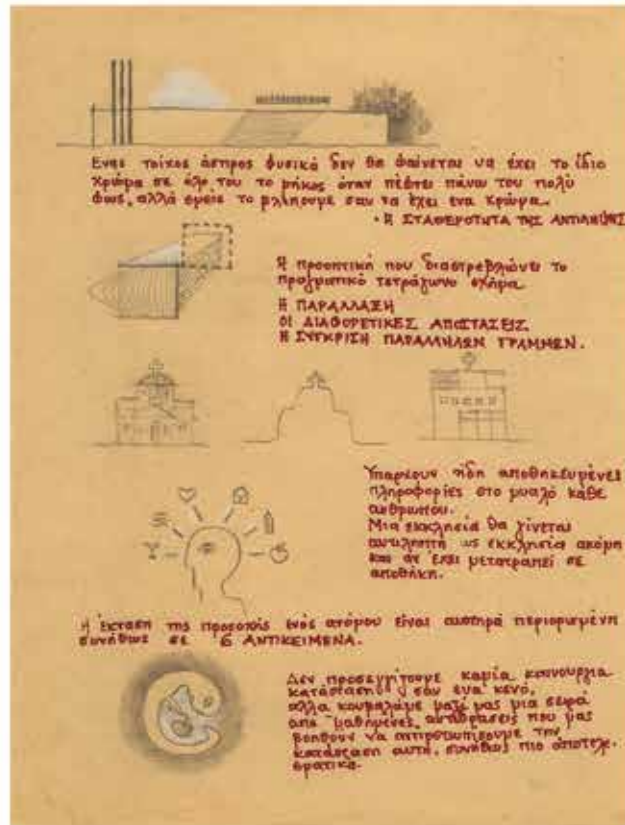 Ενας τοίχος άσπρος φυσικά δεν θα φαίνεται να έχει το ίδιο
χρώμα σε όλο του το μήκος όταν πέφτει πάνω του πολύ
φως, αλλά εμείς το βλέπουμε σαν να έχει ενα χρώμα.
• Η ΣΤΑΘΕΡΟΤΗΤΑ ΤΗΣ ΑΝΤΙΛΗΨΗΣ
Η προοπτική που διαστρεβλώνει το
πραγματικό τετράγωνο σχήμα
Η ΠΑΡΑΛΛΑΞΗ
ΟΙ ΔΙΑΦΟΡΕΤΙΚΕΣ ΑΠΟΣΤΑΣΕΙΣ
Η ΣΥΓΚΡΙΣΗ ΠΑΡΑΛΛΗΛΩΝ ΓΡΑΜΜΩΝ.
Υπάρχουν ήδη αποθηκευμένες
πληροφορίες στο μυαλό κάθε
ανθρώπου.
Μια εκκλησία θα γίνεται
αντιληπτή ως εκκλησία ακόμη
και αν έχει μετατραπεί σε
αποθήκη.
Η έκταση της προσοχής ενός ατόμου είναι αυστηρά περιορισμένη
συνήθως σε 6 ΑΝΤΙΚΕΙΜΕΝΑ.
Δεν προσεγγίζουμε καμία καινουργια
κατάσταση σαν ενα κενό,
αλλα κουβαλάμε μαζί μας μια σειρά
από μαθημένες αντιδράσεις που μας
βοηθούν να αντιμετωπίσουμε την
κατάσταση αυτή, συνήθως πιο αποτελε-
σματικά.